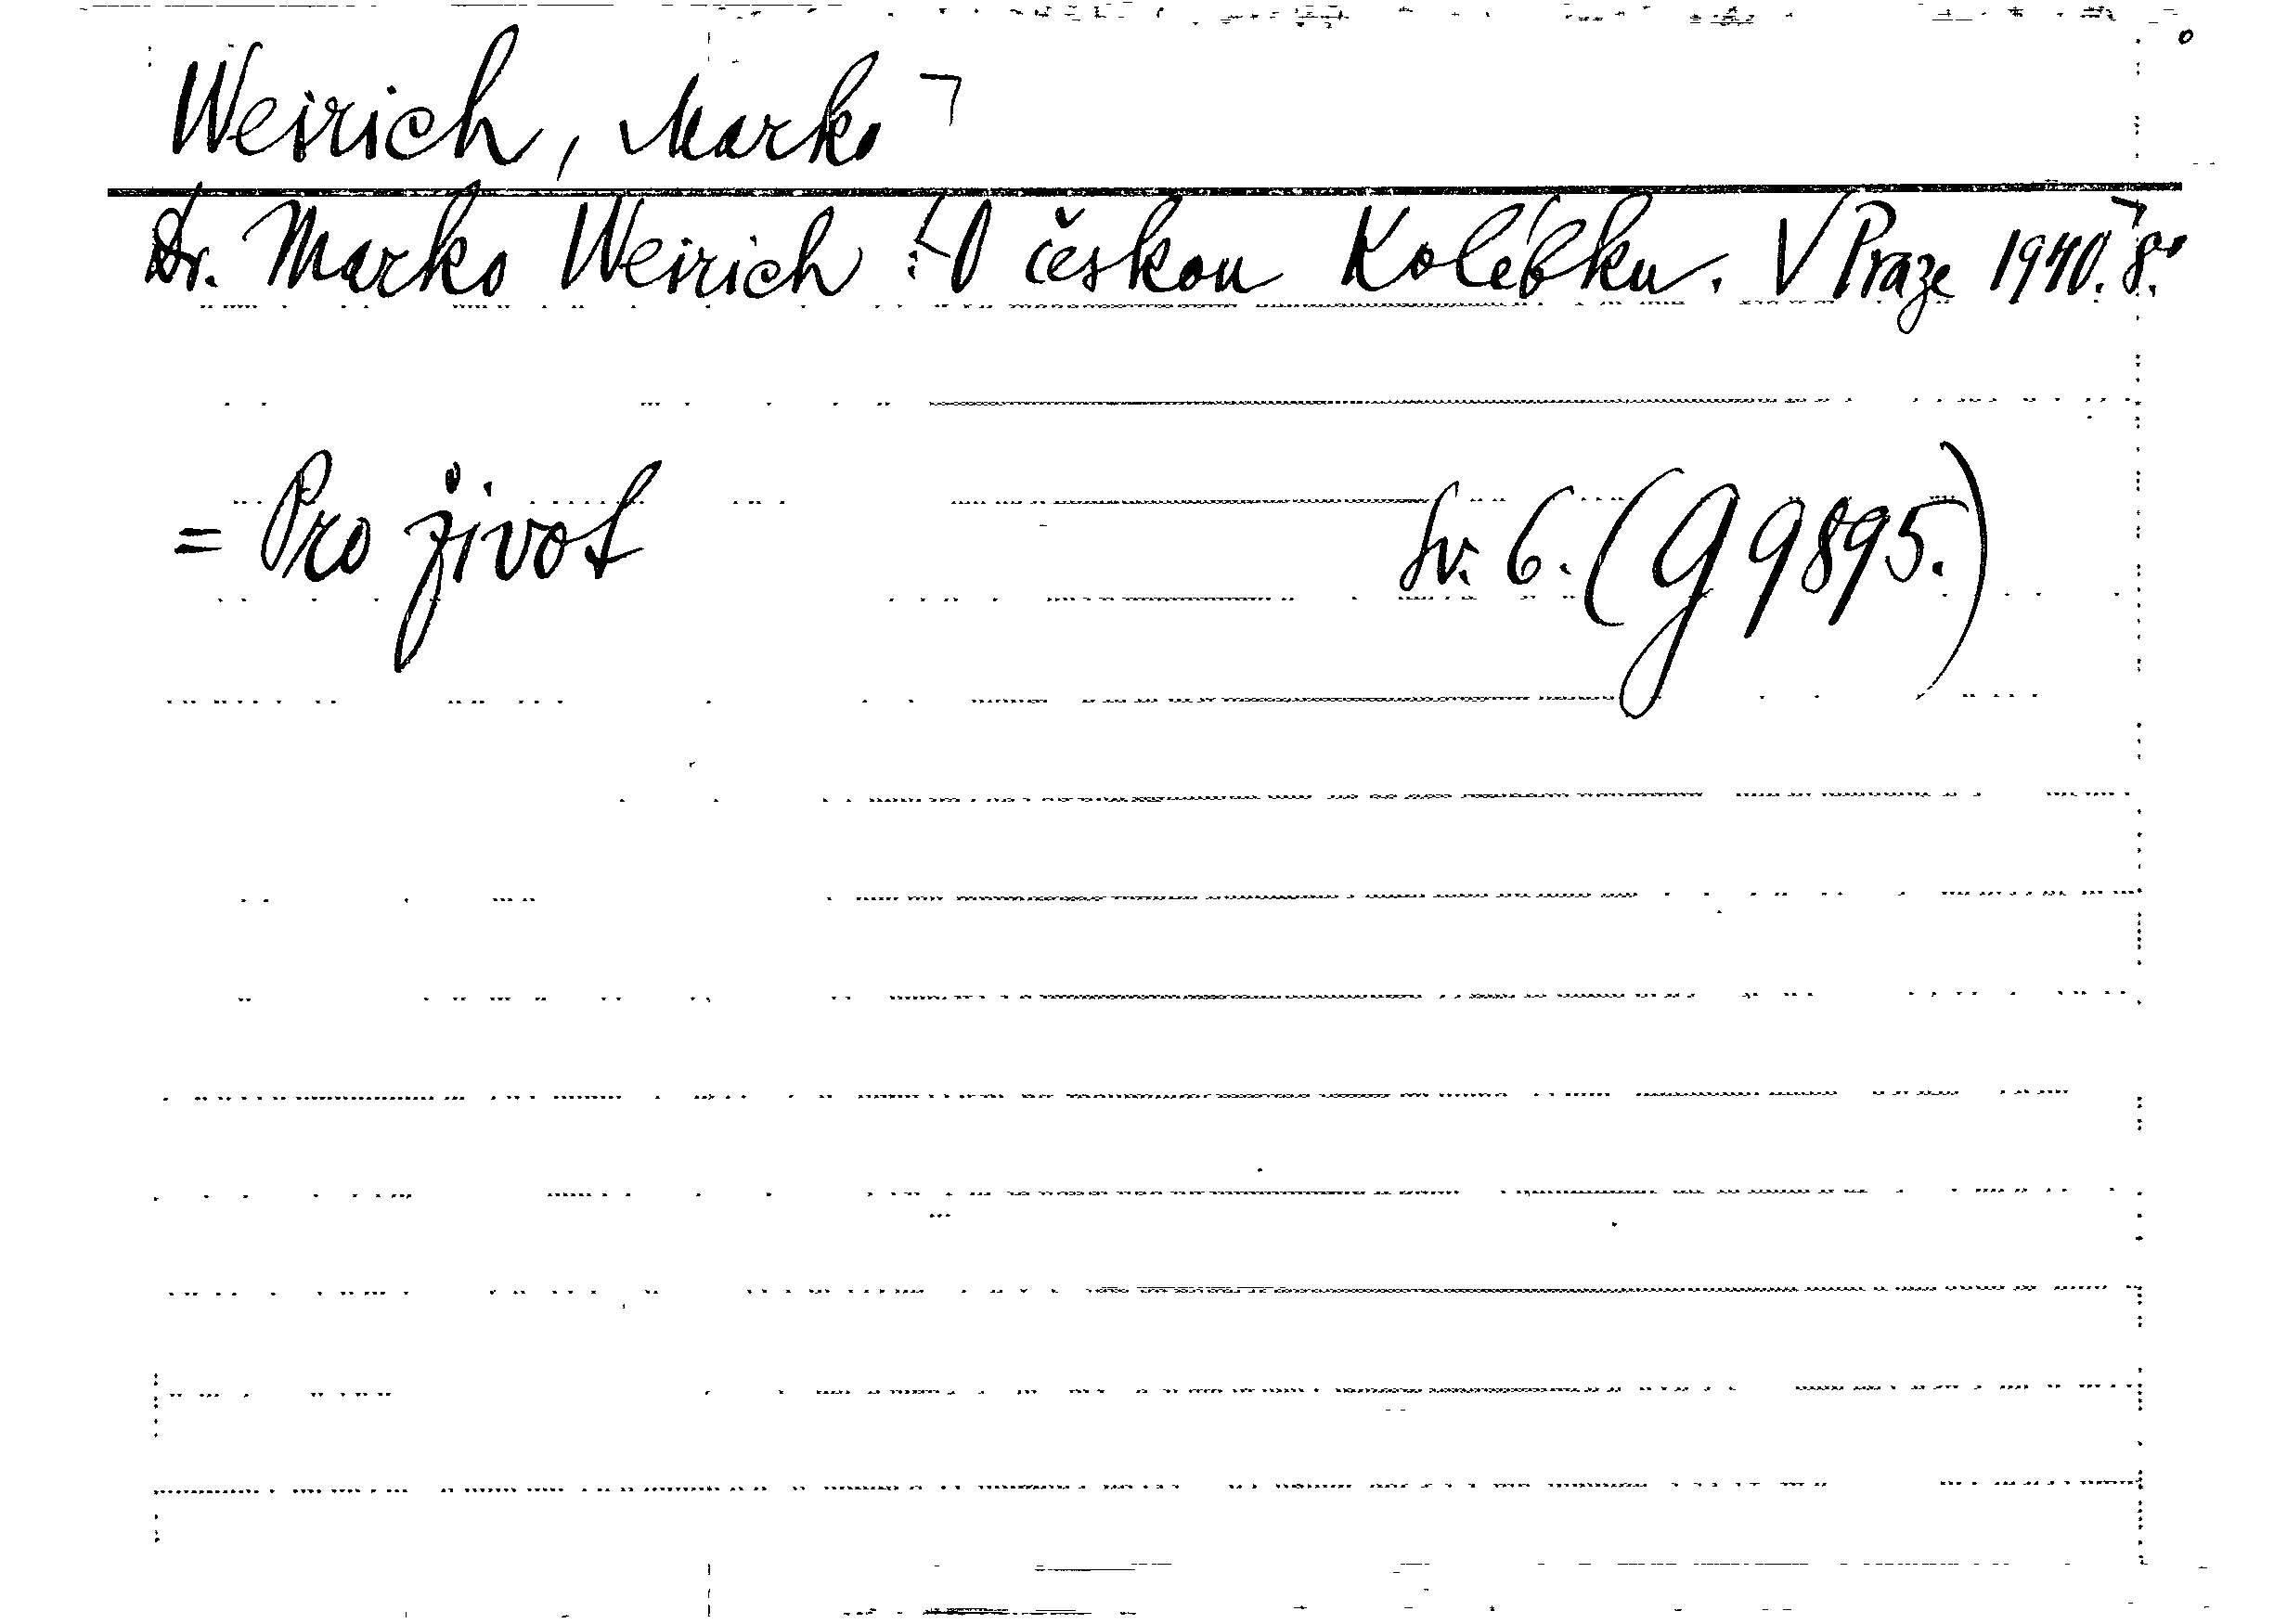 Weirich, Marko
Dr. Marko Weirich : O českou Kolébku. V Praze 1940. 8°.
= Pro život Sv. 6. (G 9895.)